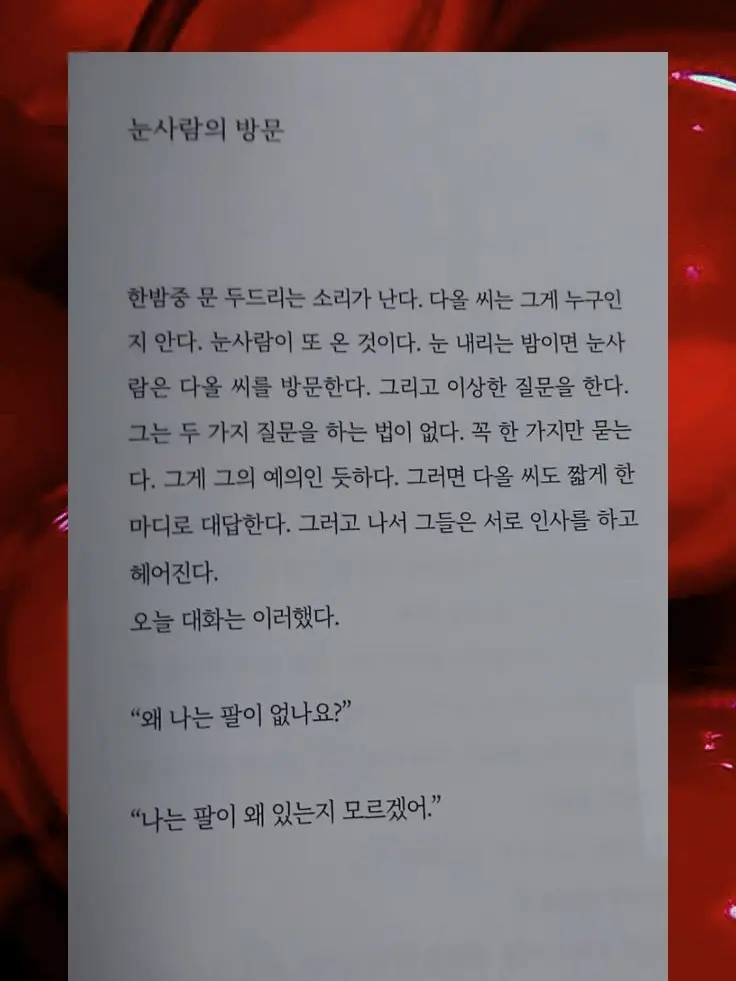 눈사람의 방문
한밤중 문 두드리는 소리가 난다. 다올 씨는 그게 누구인
지 안다. 눈사람이 또 온 것이다. 눈 내리는 밤이면 눈사
람은 다올 씨를 방문한다. 그리고 이상한 질문을 한다.
그는 두 가지 질문을 하는 법이 없다. 꼭 한 가지만 묻는
다. 그게 그의 예의인 듯하다. 그러면 다올 씨도 짧게 한
마디로 대답한다. 그러고 나서 그들은 서로 인사를 하고
헤어진다.
오늘 대화는 이러했다.
“왜 나는 팔이 없나요?”
“나는 팔이 왜 있는지 모르겠어.”